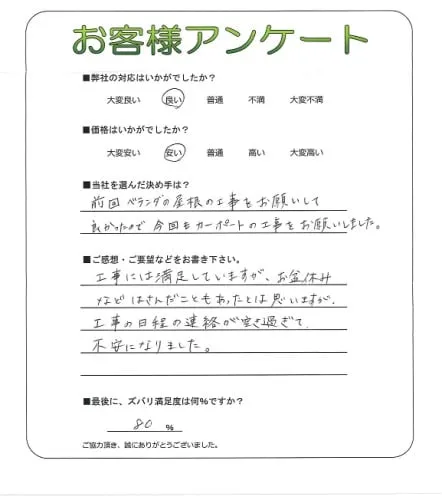 お客様アンケート
■弊社の対応はいかがでしたか?
大変良い 良い 普通 不満 大変不満
■価格はいかがでしたか?
大変安い 安い 普通 高い 大変高い
■当社を選んだ決め手は?
前回 ベランダの屋根の工事をお願いして
良かったので 今回もカーポートの工事をお願いしました。
■ご感想・ご要望などをお書き下さい。
工事には満足していますが、お盆休み
などはさんだこともあったとは思いますが
工事の日程の連絡が空き過ぎて
不安になりました。
■最後に、ズバリ満足度は何%ですか?
80 %
ご協力頂き、誠にありがとうございました。